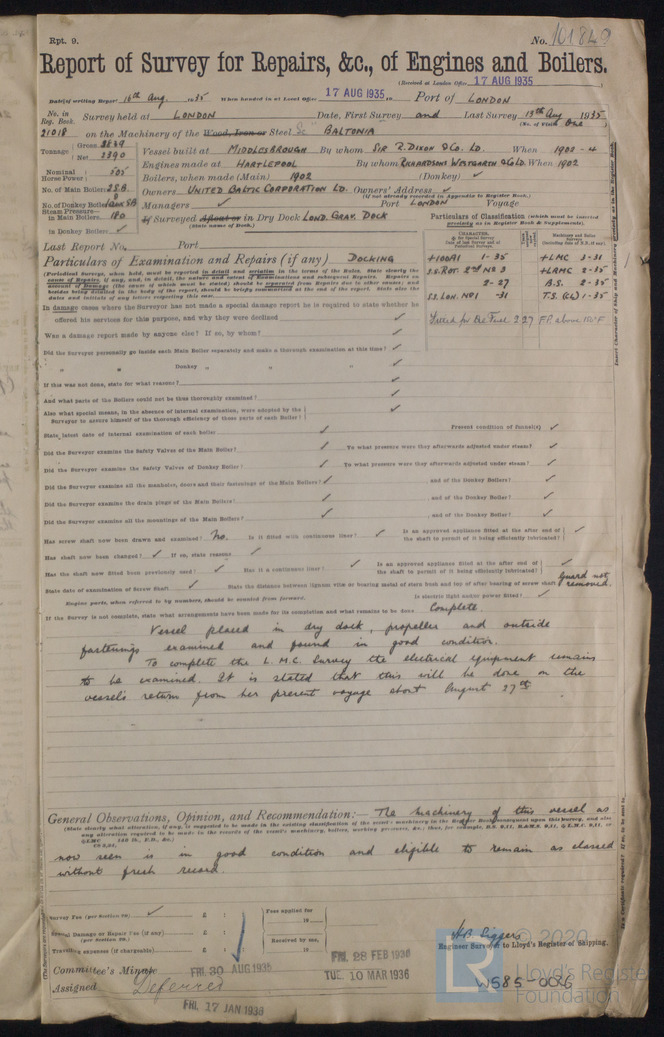 Rpt. 9.
No. 101849
Report of Survey for Repairs, &c., of Engines and Boilers.
(Received at London Office 17 AUG 1935
Date of writing Report 16th Aug. 1935 When handed in at Local Office 17 AUG 1935 Port of LONDON
No. in Reg. Book. Survey held at LONDON Date, First Survey and Last Survey 13th Aug 1935
(No. of Visits One)
21018 on the Machinery of the Wood, Iron or Steel Sc "BALTONIA
Tonnage Gross Net 2390
Vessel built at MIDDLESBROUGH By whom SIR R. DIXON & CO. LD. When
Engines made at HARTLEPOOL By whom RICHARDSONS WESTGARTH & CO LD. When 1902
Nominal Horse Power
Boilers, when made (Main) 1902 (Donkey) ✓
No. of Main Boilers 2SB
Owners UNITED BALTIC CORPORATION LD. Owners' Address ✓
(If not already recorded in Appendix to Register Book.)
No. of Donkey Boilers
Managers ✓ Port LONDON Voyage
Steam Pressure in Main Boilers 180
If Surveyed Afloat or in Dry Dock LOND. GRAV. DOCK
(State name of Dock.)
in Donkey Boilers ✓
Particulars of Classification (which must be inserted precisely as in Register Book & Supplements).
Last Report No. Port
Particulars of Examination and Repairs (if any) DOCKING
+100A1 1-35 +LMC 3-31
S.S. ROT. 2nd No 3 +LAMC 2-35
2-27 B.S. 2-35
S.S. LON. No 1 -31 T.S. (CL) 1-35
Fitted for Oil Fuel 2.27 F.P. above 150°F
In damage cases where the Surveyor has not made a special damage report he is required to state whether he
offered his services for this purpose, and why they were declined ✓
Was a damage report made by anyone else? If so, by whom? ✓
Did the Surveyor personally go inside each Main Boiler separately and make a thorough examination at this time? ✓
" " Donkey " " " ✓
If this was not done, state for what reasons? ✓
And what parts of the Boilers could not be thus thoroughly examined? ✓
Also what special means, in the absence of internal examination, were adopted by the
Surveyor to assure himself of the thorough efficiency of those parts of each Boiler? ✓
State latest date of internal examination of each boiler ✓ Present condition of funnel(s) ✓
Did the Surveyor examine the Safety Valves of the Main Boiler? ✓ To what pressure were they afterwards adjusted under steam? ✓
Did the Surveyor examine the Safety Valves of Donkey Boiler? ✓ To what pressure were they afterwards adjusted under steam? ✓
Did the Surveyor examine all the manholes, doors and their fastenings of the Main Boilers? ✓ and of the Donkey Boilers? ✓
Did the Surveyor examine the drain plugs of the Main Boilers? ✓ , and of the Donkey Boiler? ✓
Did the Surveyor examine all the mountings of the Main Boilers? ✓ , and of the Donkey Boiler? ✓
Has screw shaft now been drawn and examined? No. Is it fitted with continuous liner? ✓ Is an approved appliance fitted at the after end of the shaft to permit of it being efficiently lubricated? ✓
Has shaft now been changed? ✓ If so, state reasons ✓
Has the shaft now fitted been previously used? ✓ Has it a continuous liner? ✓ Is an approved appliance fitted at the after end of the shaft to permit of it being efficiently lubricated? ✓
State date of examination of Screw Shaft ✓ State the distance between lignum vitæ or bearing metal of stern bush and top of after bearing of screw shaft Guard not removed.
Engine parts, when referred to by numbers, should be counted from forward. Is electric light and/or power fitted? ✓
If the Survey is not complete, state what arrangements have been made for its completion and what remains to be done Complete.
Vessel placed in dry dock, propeller and outside
fastenings examined and found in good condition.
To complete the L.M.C. Survey the electrical equipment remains
to be examined. It is stated that this will be done on the
vessels return from her present voyage about August 27th.
General Observations, Opinion, and Recommendation:— The machinery of this vessel as
now seen is in good condition and eligible to remain as classed
without fresh record.
Survey Fee (per Section 29) ✓ £ : :
Special Damage or Repair Fee (if any) (per Section 29.) £ : :
Travelling expenses (if chargeable) £ : :
Fees applied for
19
Received by me,
19
H.B. Siggers
Engineer Surveyor to Lloyd's Register of Shipping.
Committee's Minute FRI. 30 AUG 1935
FRI. 28 FEB 1936
TUE. 10 MAR 1936
Assigned Deferred
FRI. 17 JAN 1936
W585-0086
© 2020
LR
Lloyd's Register
Foundation